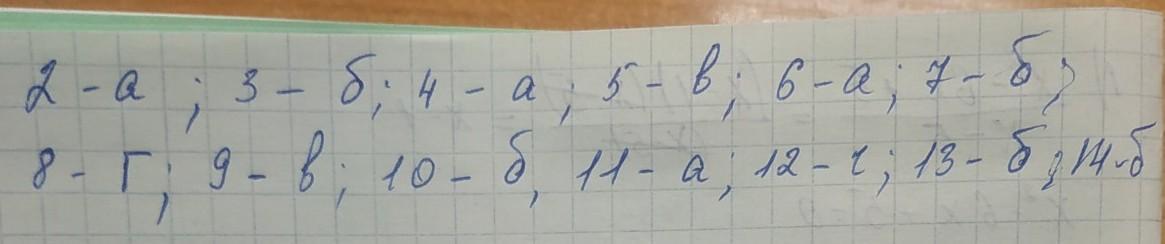 2 - а ; 3 - б; 4 - а; 5 - в; 6 - а; 7 - б;
8 - Г; 9 - в; 10 - б, 11 - а; 12 - г; 13 - б; 14-б